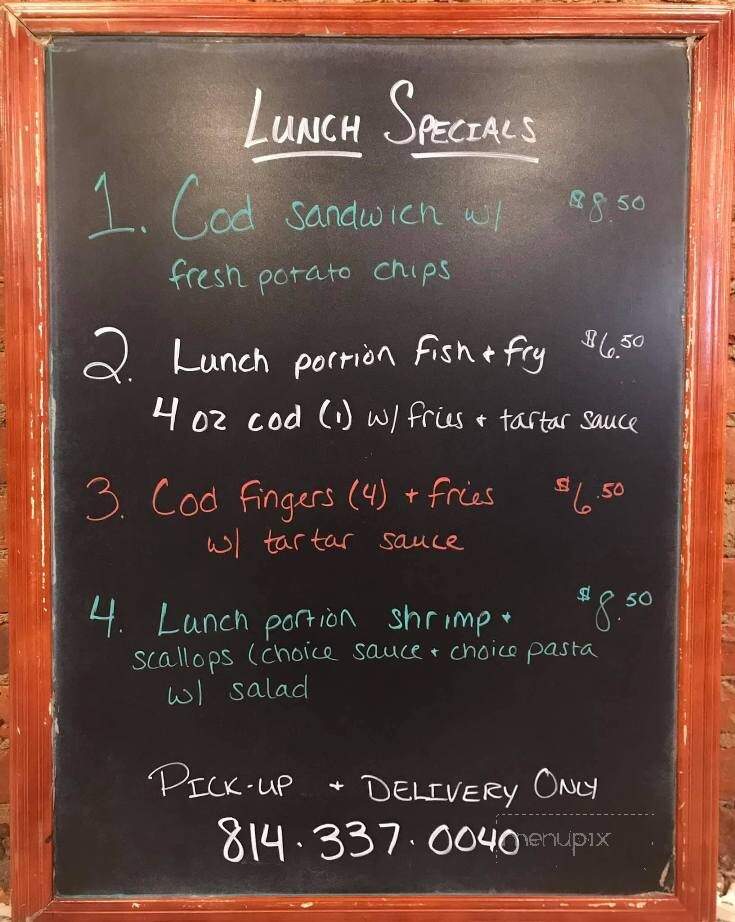 LUNCH SPECIALS
1. Cod sandwich w/ $8.50
fresh potato chips
2. Lunch portion Fish + Fry $6.50
4 oz cod (1) w/ fries + tartar sauce
3. Cod Fingers (4) + fries $6.50
w/ tartar sauce
4. Lunch portion shrimp + $8.50
scallops (choice sauce + choice pasta
w/ salad
PICK-UP + DELIVERY ONLY
814.337.0040
menupix